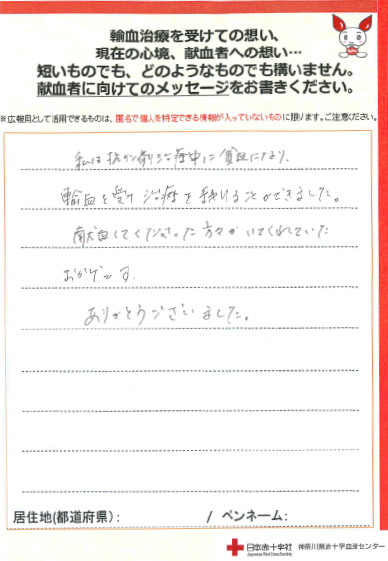 輸血治療を受けての想い、
現在の心境、献血者への想い…
短いものでも、どのようなものでも構いません。
献血者に向けてのメッセージをお書きください。
※広報用として活用できるものは、匿名で個人を特定できる情報が入っていないものに限ります。ご注意ください。
私は抗がん剤治療中に貧血になり、
輸血を受け治療を続けることができました。
献血してくださった方々がいてくれていた
おかげです。
ありがとうございました。
居住地(都道府県): / ペンネーム:
日本赤十字社 神奈川県赤十字血液センター
Japanese Red Cross Society